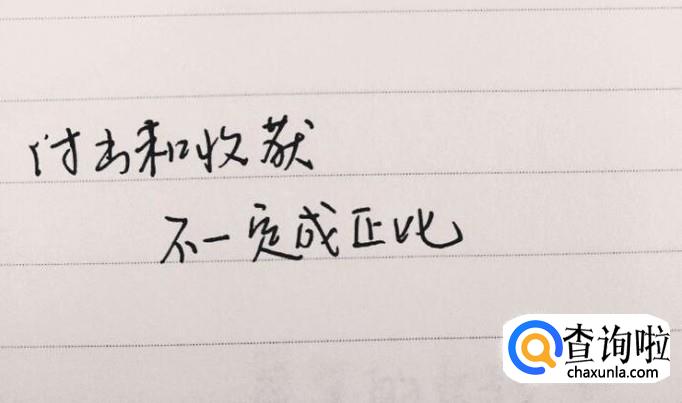 付出和收获
不一定成正比
查询啦
chaxunla.com